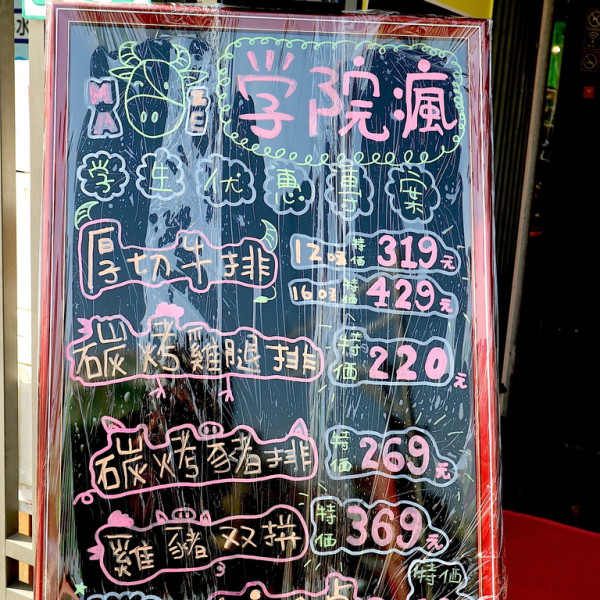 MA LE 学院瘋
学生优惠專案
厚切牛排 12oz 特価 319元
16oz 特価 429元
碳烤雞腿排 特価 220元
碳烤豬排 特価 269元
雞豬双拼 特価 369元
特価